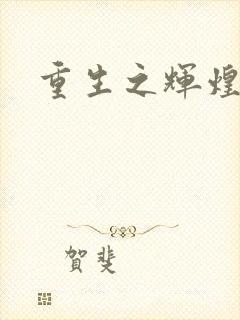 重生之輝煌
賀斐